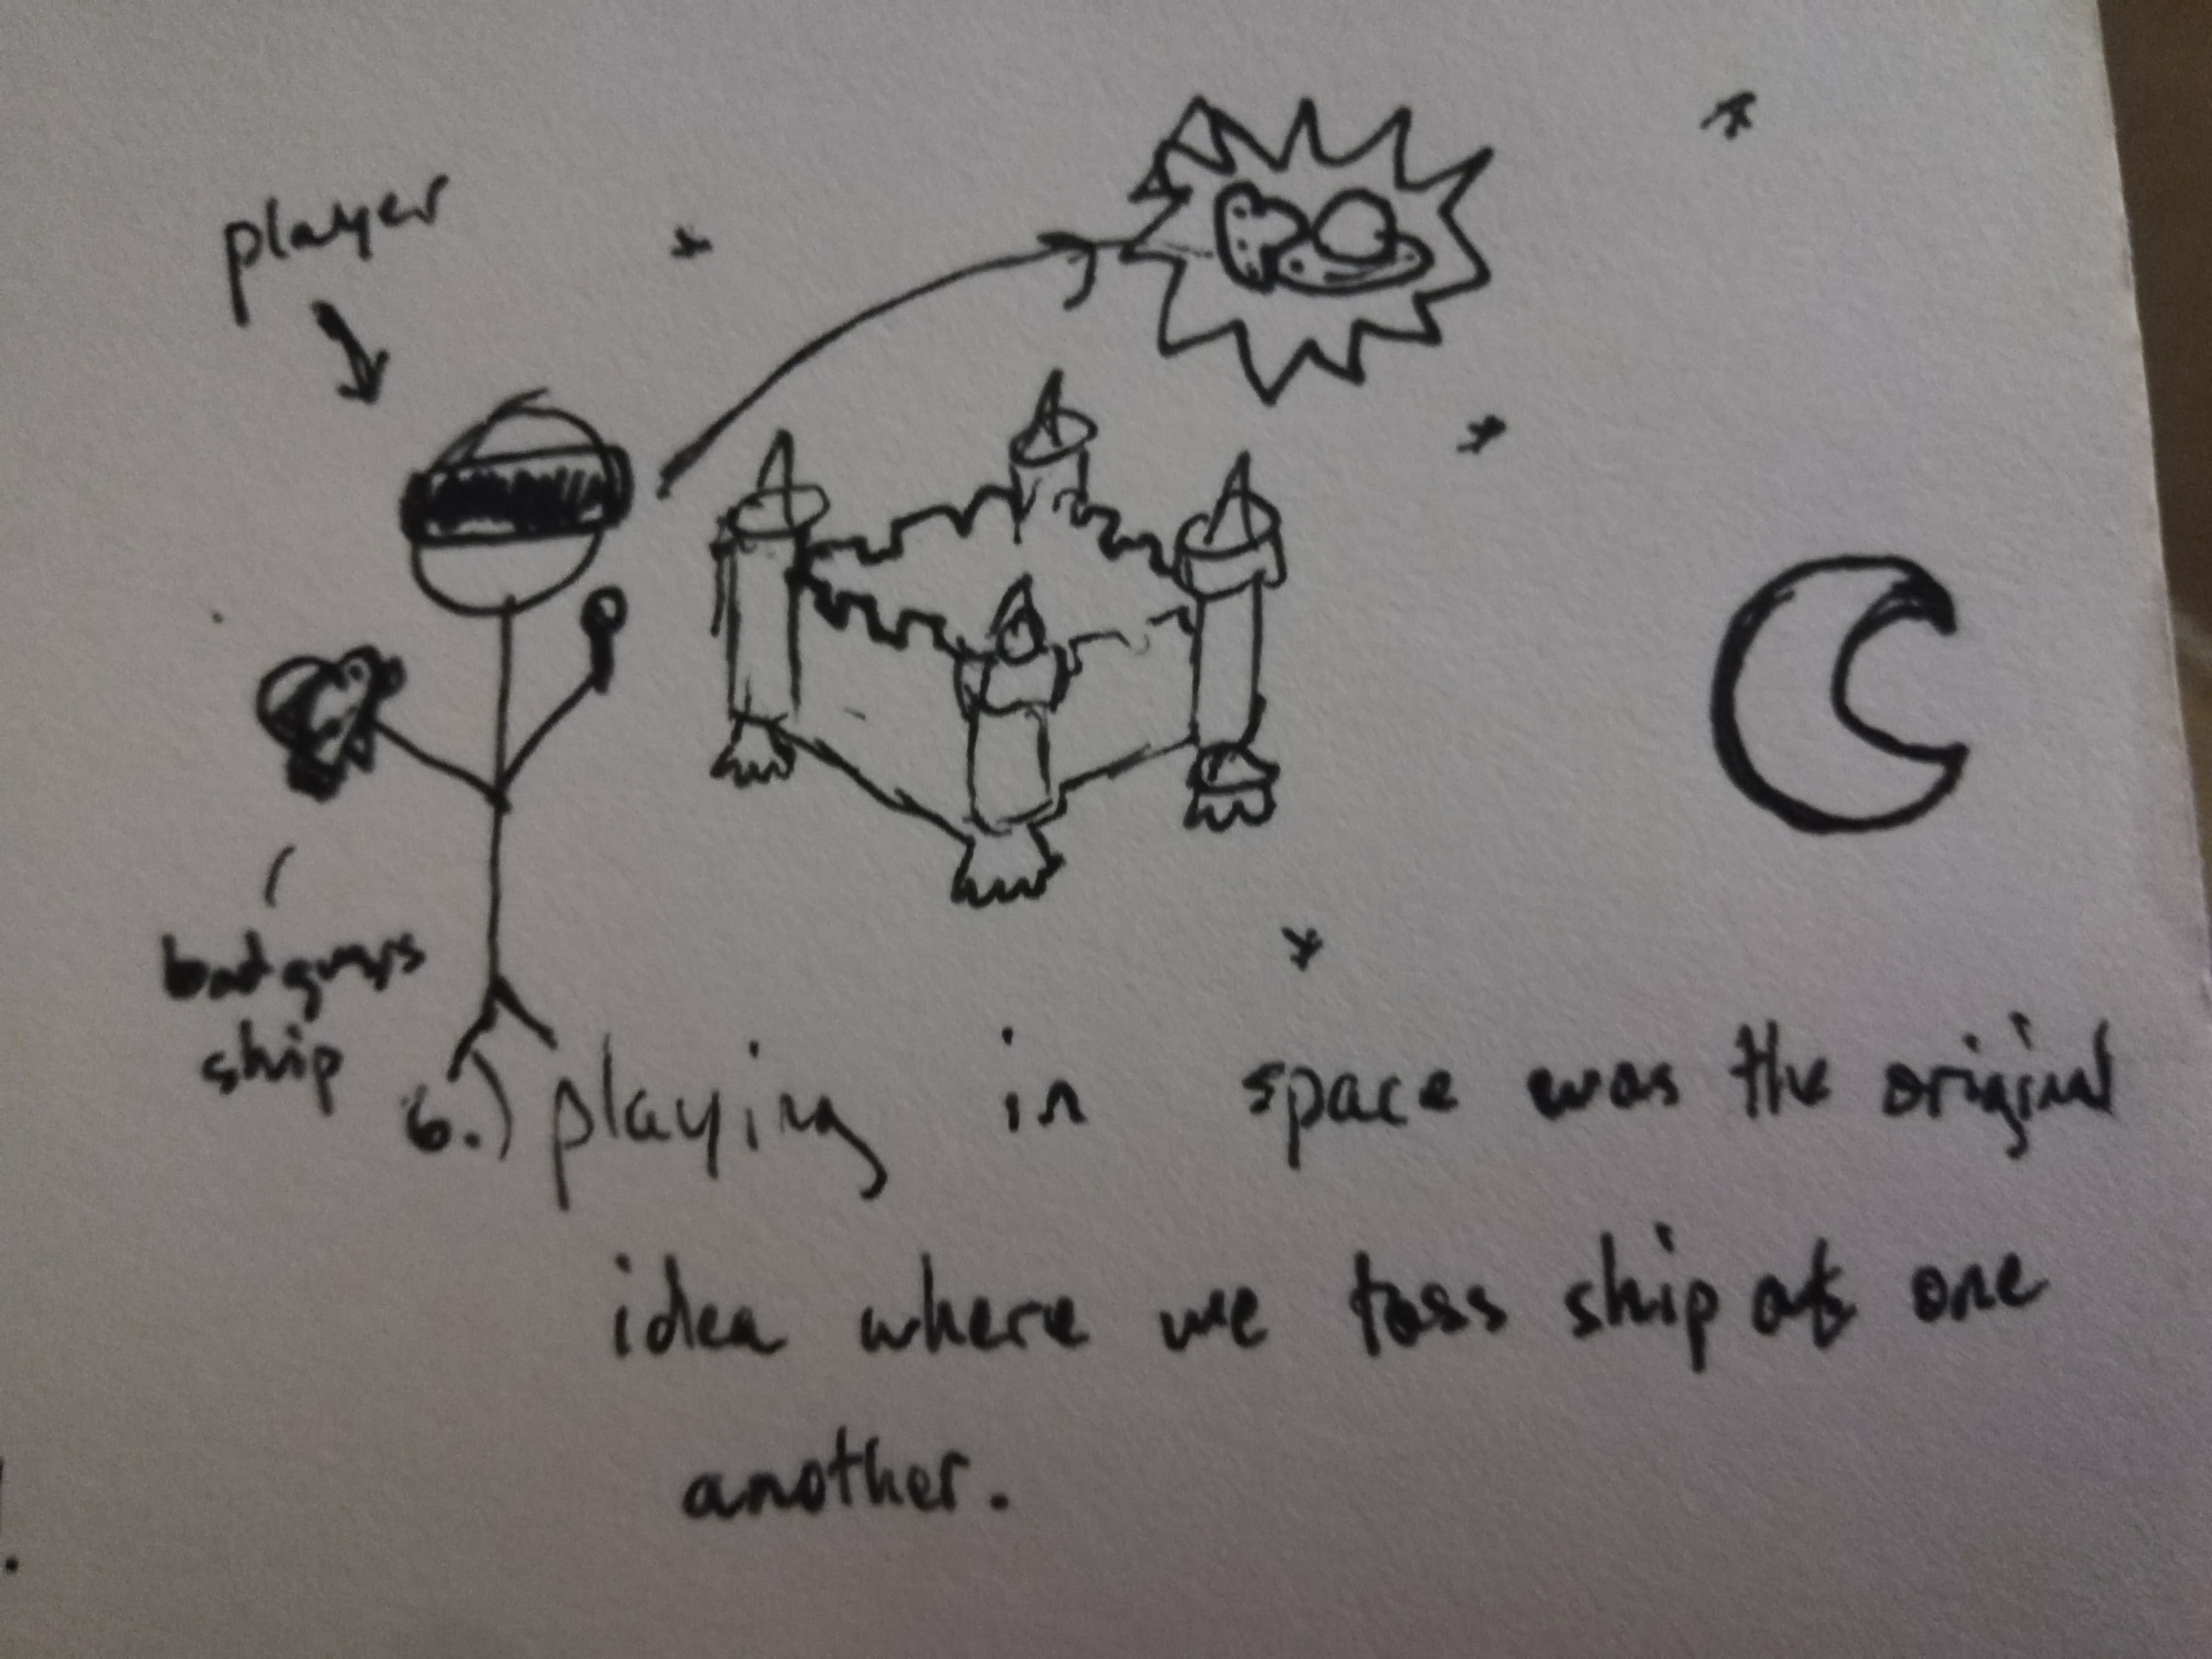 player
badguys
ship
6.) playing in space was the original
idea where we toss ship at one
another.